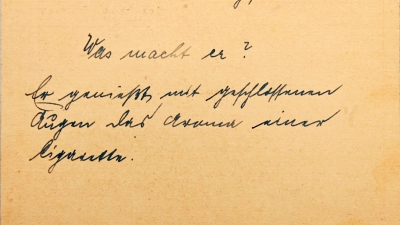 Was macht er?
Er genießt mit geschlossenen
Augen das Aroma einer
Cigarette.